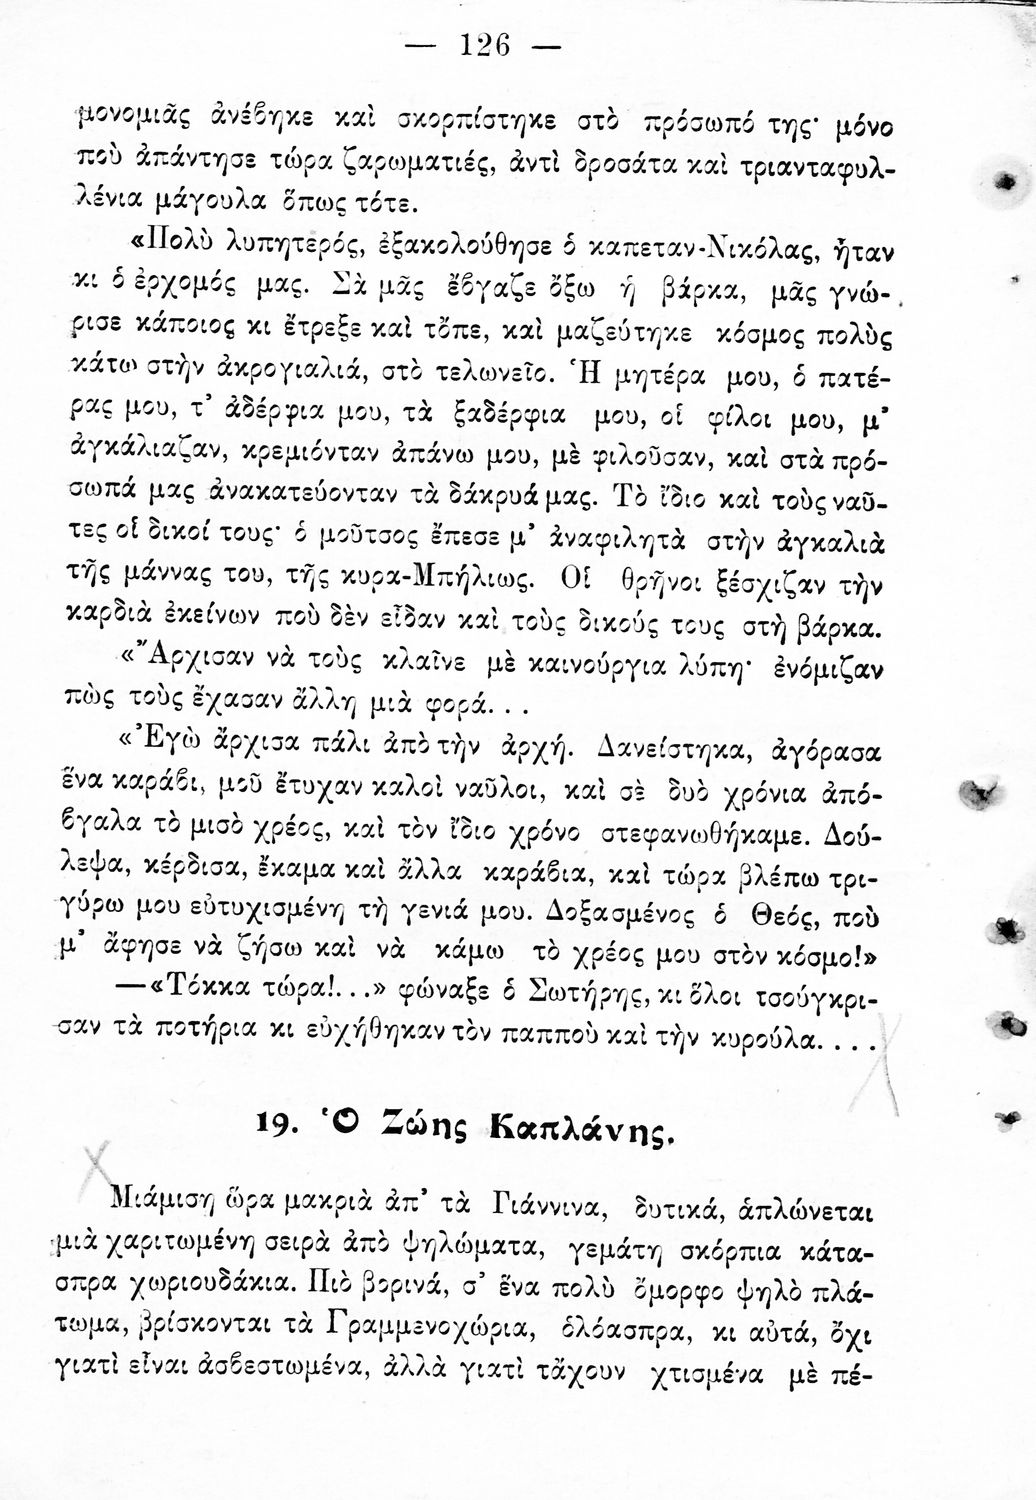 — 126 —
μονομιᾶς ἀνέβηκε καὶ σκορπίστηκε στὸ πρόσωπό της· μόνο
ποὺ ἀπάντησε τώρα ζαρωματιές, ἀντὶ δροσάτα καὶ τριανταφυλ-
λένια μάγουλα ὅπως τότε.
«Πολὺ λυπητερός, ἐξακολούθησε ὁ καπεταν-Νικόλας, ἦταν
κι ὁ ἐρχομός μας. Σὰ μᾶς ἔβγαζε ὄξω ἡ βάρκα, μᾶς γνώ-
ρισε κάποιος κι ἔτρεξε καὶ τὄπε, καὶ μαζεύτηκε κόσμος πολὺς
κάτω στὴν ἀκρογιαλιά, στὸ τελωνεῖο. Ἡ μητέρα μου, ὁ πατέ-
ρας μου, τ’ ἀδέρφια μου, τὰ ξαδέρφια μου, οἱ φίλοι μου, μ’
ἀγκάλιαζαν, κρεμιόνταν ἀπάνω μου, μὲ φιλοῦσαν, καὶ στὰ πρό-
σωπά μας ἀνακατεύονταν τὰ δάκρυά μας. Τὸ ἴδιο καὶ τοὺς ναῦ-
τες οἱ δικοί τους· ὁ μοῦτσος ἔπεσε μ’ ἀναφιλητὰ στὴν ἀγκαλιὰ
τῆς μάννας του, τῆς κυρα-Μπήλιως. Οἱ θρῆνοι ξέσχιζαν τὴν
καρδιὰ ἐκείνων ποὺ δὲν εἶδαν καὶ τοὺς δικούς τους στὴ βάρκα.
«Ἄρχισαν νὰ τοὺς κλαῖνε μὲ καινούργια λύπη· ἐνόμιζαν
πὼς τοὺς ἔχασαν ἄλλη μιὰ φορά. . .
«Ἐγὼ ἄρχισα πάλι ἀπὸ τὴν ἀρχή. Δανείστηκα, ἀγόρασα
ἕνα καράβι, μοῦ ἔτυχαν καλοὶ ναῦλοι, καὶ σὲ δυὸ χρόνια ἀπό-
βγαλα τὸ μισὸ χρέος, καὶ τὸν ἴδιο χρόνο στεφανωθήκαμε. Δού-
λεψα, κέρδισα, ἔκαμα καὶ ἄλλα καράβια, καὶ τώρα βλέπω τρι-
γύρω μου εὐτυχισμένη τὴ γενιά μου. Δοξασμένος ὁ Θεός, ποὺ
μ’ ἄφησε νὰ ζήσω καὶ νὰ κάμω τὸ χρέος μου στὸν κόσμο!»
—«Τόκκα τώρα!. . .» φώναξε ὁ Σωτήρης, κι ὅλοι τσούγκρι-
σαν τὰ ποτήρια κι εὐχήθηκαν τὸν παπποὺ καὶ τὴν κυρούλα. . . .
19. Ὁ Ζώης Καπλάνης.
Μιάμιση ὥρα μακριὰ ἀπ’ τὰ Γιάννινα, δυτικά, ἁπλώνεται
μιὰ χαριτωμένη σειρὰ ἀπὸ ψηλώματα, γεμάτη σκόρπια κάτα-
σπρα χωριουδάκια. Πιὸ βορινά, σ’ ἕνα πολὺ ὄμορφο ψηλὸ πλά-
τωμα, βρίσκονται τὰ Γραμμενοχώρια, ὁλόασπρα, κι αὐτά, ὄχι
γιατὶ εἶναι ἀσβεστωμένα, ἀλλὰ γιατὶ τἄχουν χτισμένα μὲ πέ-